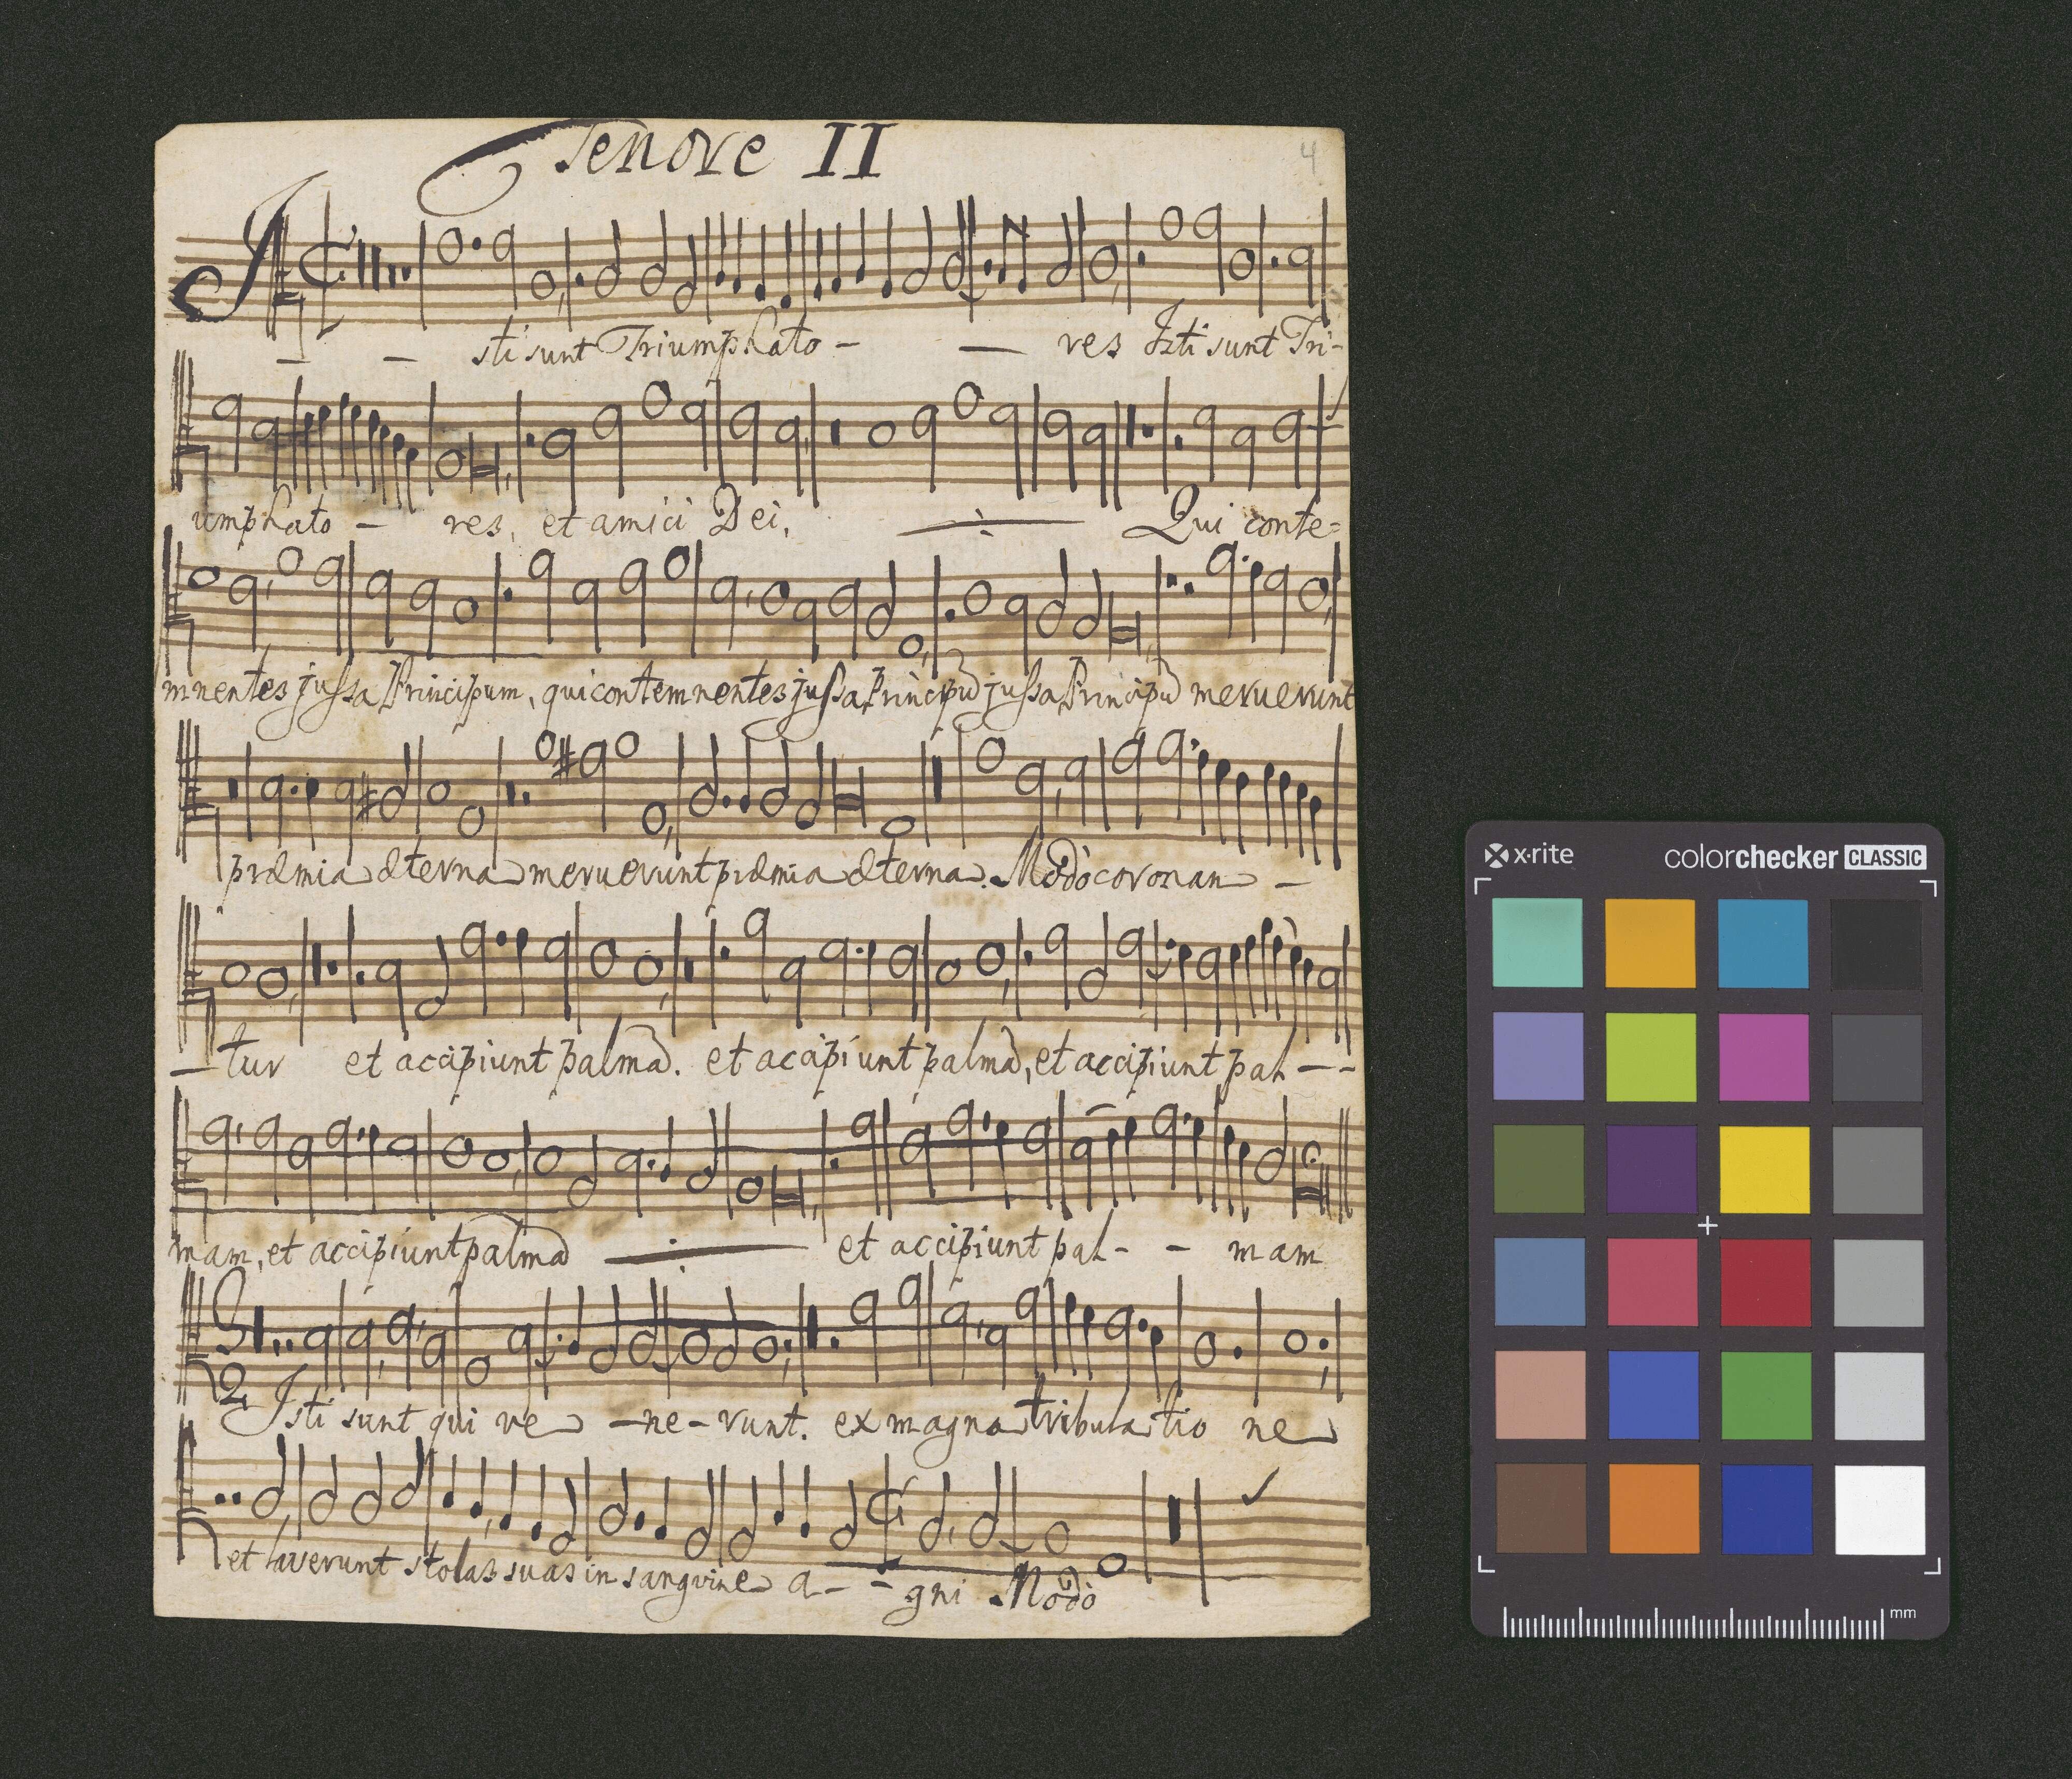 Tenore II
4
Isti sunt Triumphato - — res Isti sunt Tri-
umphato - res, et amici Dei, Qui conte=
mnentes jussa Principum, qui contemnentes jussa Principũ jussa Principũ meruerunt
præmia æterna meruerunt præmia æterna. Modò coronan -
- tur et accipiunt palmã. et accipiunt palmã, et accipiunt pal - -
mam, et accipiunt palmã et accipiunt pal - - mam
Isti sunt qui ve - ne - runt. ex magna tribulatio ne
et laverunt stolas suas in sanguine a - - gni Modò
x·rite colorchecker CLASSIC
mm